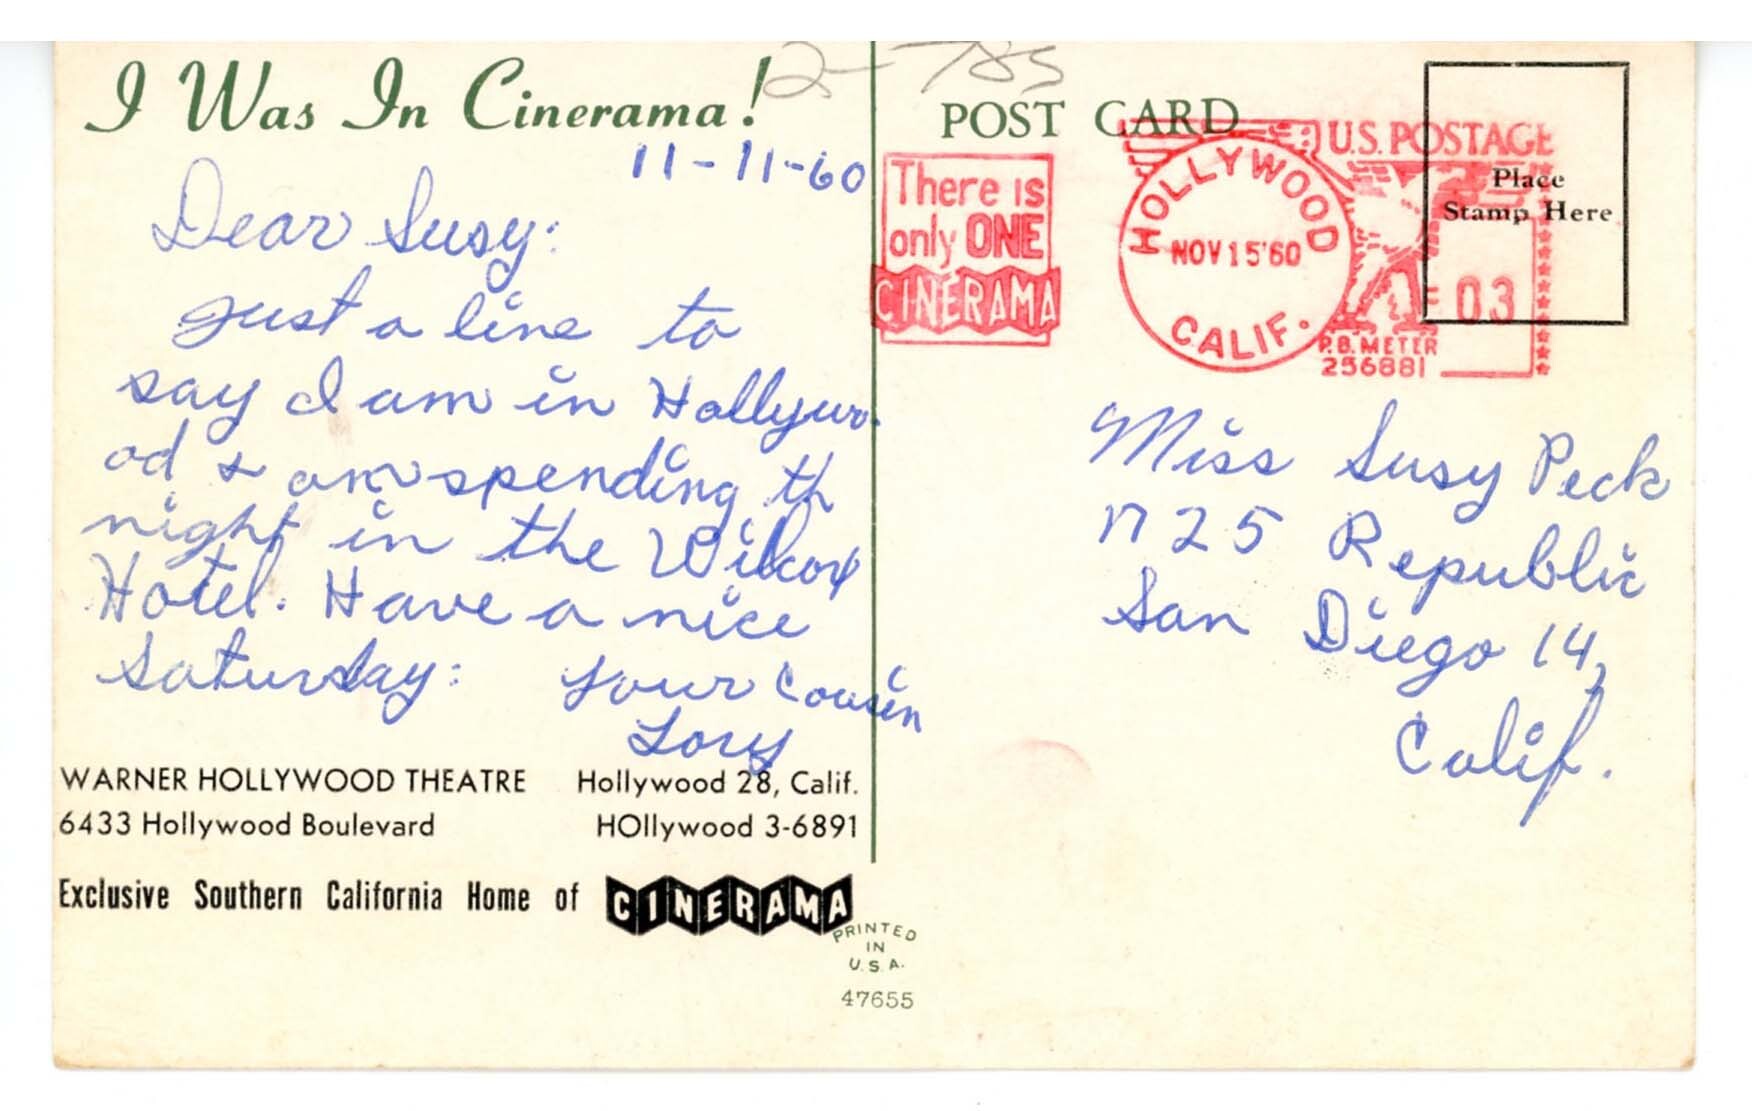 I Was In Cinerama!
2-785
11-11-60
Dear Susy:
just a line to
say I am in Hollywo-
od & am spending th
night in the Wilcox
Hotel. Have a nice
Saturday: Your Cousin
Lory
WARNER HOLLYWOOD THEATRE Hollywood 28, Calif.
6433 Hollywood Boulevard HOllywood 3-6891
Exclusive Southern California Home of CINERAMA
PRINTED
IN
U.S.A.
47655
POST CARD
There is
only ONE
CINERAMA
HOLLYWOOD
NOV 15 '60
CALIF.
U.S. POSTAGE
03
P.B. METER
256881
Place
Stamp Here
Miss Susy Peck
25 Republic
San Diego 14,
Calif.